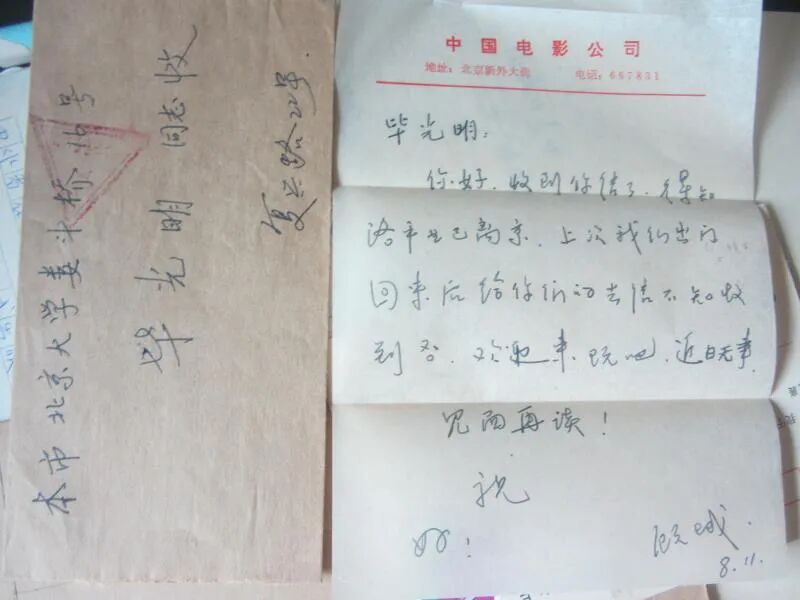 本市 北京大学娄斗桥 16号
毕光明 同志收
复兴路22号.
中国电影公司
地址：北京新外大街 电话：667831
毕光明：
你好，收到你信了，得知
已离京，上次我们出门
回来后给你们的去信不知收
到否，欢迎来玩吧，近日无事.
见面再谈！
祝
好！
顾城.
8.11.